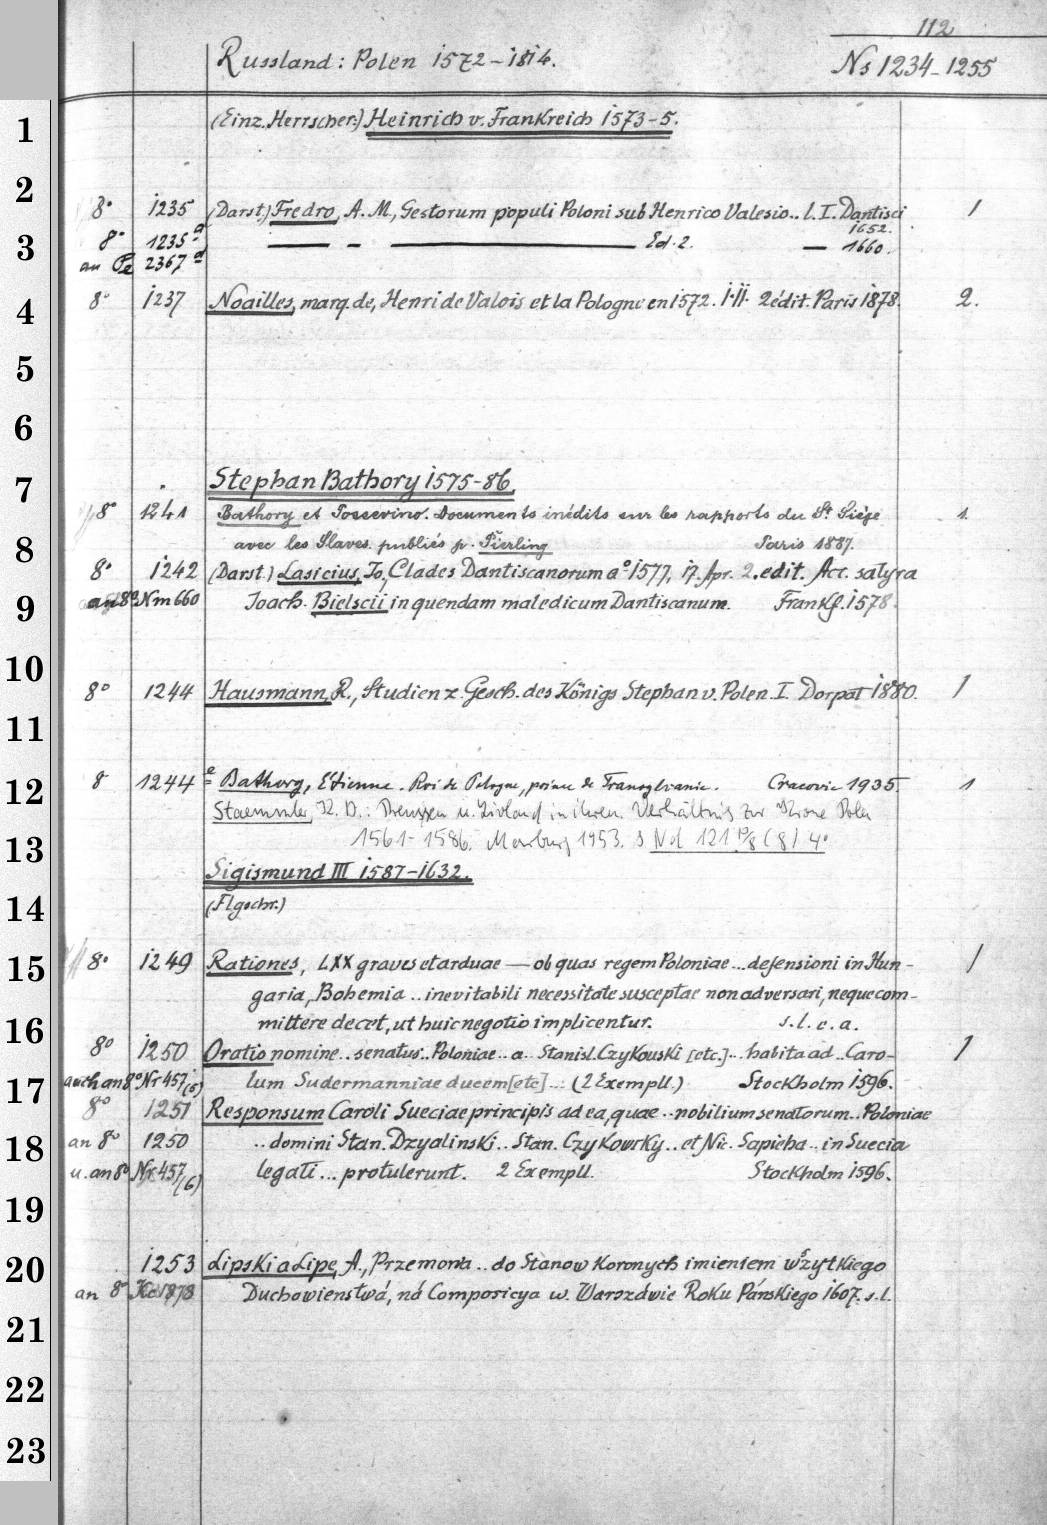 112
Russland: Polen 1572-1814.
Ns 1234-1255
1
(Einz. Herrscher:) Heinrich v. Frankreich 1573-5.
2
8° 1235 (Darst.) Fredro, A. M., Gestorum populi Poloni sub Henrico Valesio.. l. I. Dantisci 1
1652.
3
8° 1235 a — — — Ed. 2. — 1660.
an Pe 2367 a
4
8° 1237 Noailles, marq. de, Henri de Valois et la Pologne en 1572. I.II. 2 édit. Paris 1878. 2.
5
6
7
Stephan Bathory 1575-86.
8° 1241 Bathory et Possevino. Documents inédits sur les rapports du St. Siège 1.
8
avec les Slaves publiés p. Pierling Paris 1887.
8° 1242 (Darst.) Lasicius, Jo, Clades Dantiscanorum a° 1577, 17. Apr. 2. edit. Acc. satyra
9
an 8° Nm 660 Joach. Bielscii in quendam maledicum Dantiscanum. Frankf. 1578.
10
8° 1244 Hausmann, R., Studien z. Gesch. des Königs Stephan v. Polen. I. Dorpat 1880. 1
11
12
8° 1244 e Bathory, Etienne. Roi de Pologne, prince de Transylvanie. Cracovie 1935. 1
Staemmler, K. D.: Preussen u. Livland in ihrem Verhältnis zur Krone Polen
13
1561-1586. Marburg 1953. s Nd 121 19/8 (8) 4°
Sigismund III 1587-1632.
14
(Flgschr.)
15
8° 1249 Rationes, LXX graves et arduae — ob quas regem Poloniae... defensioni in Hun- 1
garia, Bohemia .. inevitabili necessitate susceptae non adversari, neque com-
16
mittere decet, ut huic negotio implicentur. s. l. e. a.
8° 1250 Oratio nomine.. senatus.. Poloniae.. a. Stanisl. Czykouski [etc.].. habita ad.. Caro- 1
17
auch an 8° Nr 457 (5) lum Sudermanniae ducem [etc]... (2 Exempll.) Stockholm 1596.
8° 1251 Responsum Caroli Sueciae principis ad ea, quae.. nobilium senatorum.. Poloniae
18
an 8° 1250 .. domini Stan. Dzyalinski.. Stan. Czykowsky.. et Nic. Sapieha.. in Suecia
u. an 8° Nr 457 (6) legati... protulerunt. 2 Exempll. Stockholm 1596.
19
20
1253 Lipski a Lipe, A., Przemowa.. do Stanow Koronych imieniem wszytkiego
an 8° Duchowienstwá, ná Composicya w. Warszáwie Roku Pánskiego 1607. s. l.
21
22
23